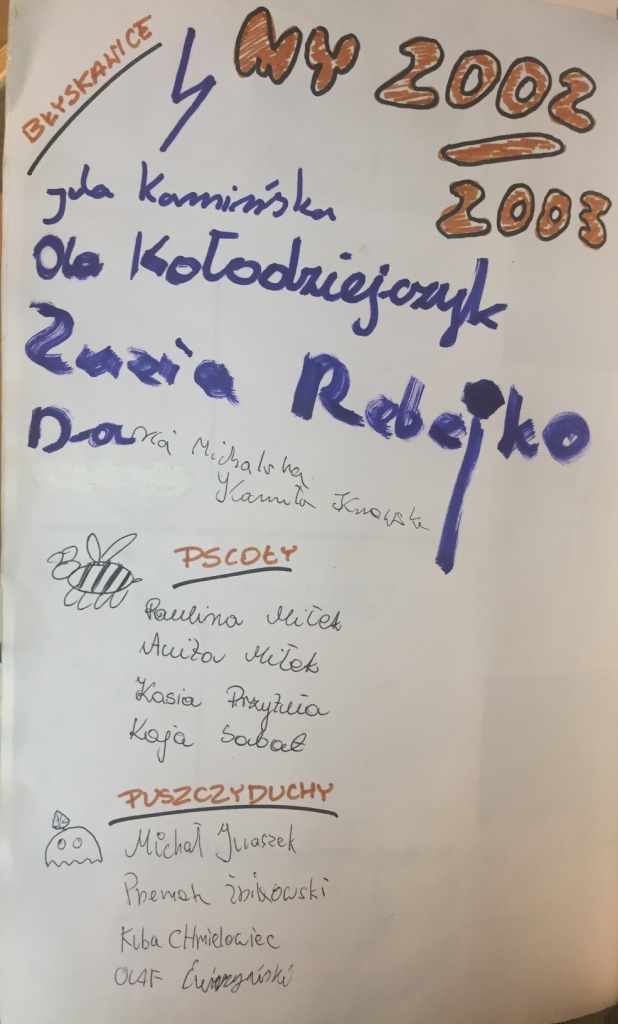 BŁYSKAWICE
MY 2002
2003
Jula Kamińska
Ola Kołodziejczyk
Zuzia Rebejko
Daria Michalska
Kamila
PSCOŁY
Paulina Miłek
Anita Miłek
Kasia
Kaja Sabat
PUSZCZYDUCHY
Michał Juraszek
Przemek Żbikowski
Kuba CHmielowiec
OLAF